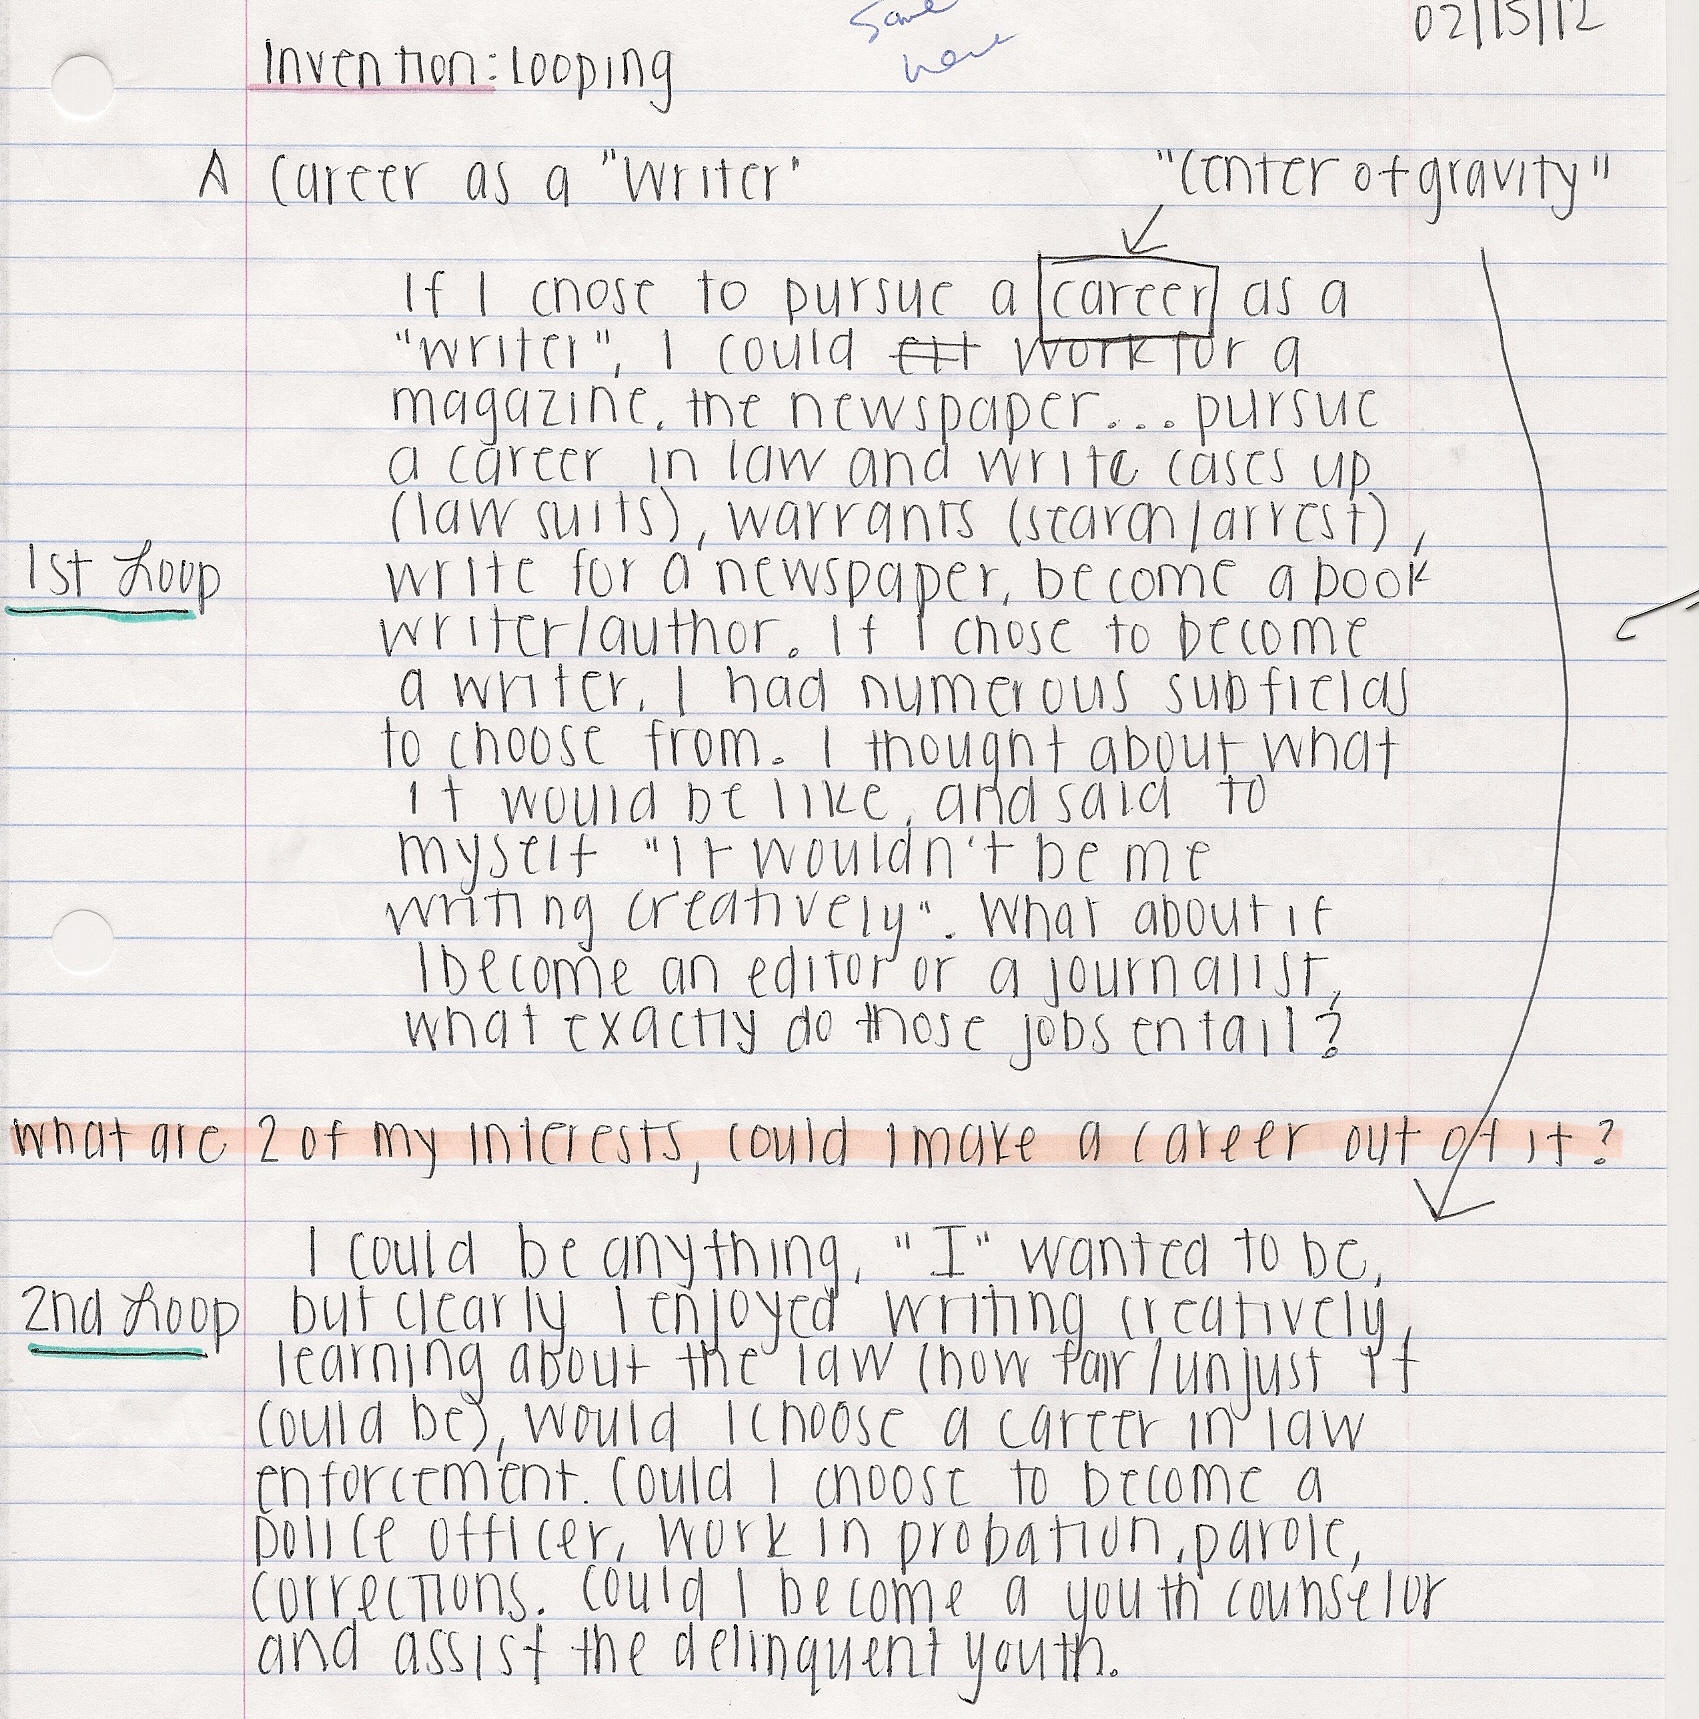 02/15/12
Invention: Looping
A Career as a "Writer"
"Center of gravity"
If I chose to pursue a career as a
"writer", I could work for a
magazine, the newspaper... pursue
a career in law and write cases up
(law suits), warrants (search/arrest),
1st Loop
write for a newspaper, become a book
writer/author. If I chose to become
a writer, I had numerous subfields
to choose from. I thought about what
it would be like, and said to
myself "It wouldn't be me
writing creatively". What about if
I become an editor or a journalist,
what exactly do those jobs entail?
What are 2 of my interests, could I make a career out of it?
I could be anything, "I" wanted to be,
2nd Loop
but clearly I enjoyed writing creatively,
learning about the law (how fair/unjust it
could be), would I choose a career in law
enforcement. Could I choose to become a
police officer, work in probation, parole,
corrections. Could I become a youth counselor
and assist the delinquent youth.